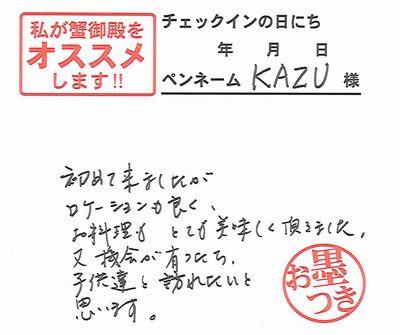 私が蟹御殿を
オススメ
します!!
チェックインの日にち
年 月 日
ペンネーム KAZU 様
初めて来ましたが
ロケーションも良く、
お料理も とても美味しく頂きました。
又機会が有ったら、
子供達と訪れたいと
思います。
お墨つき